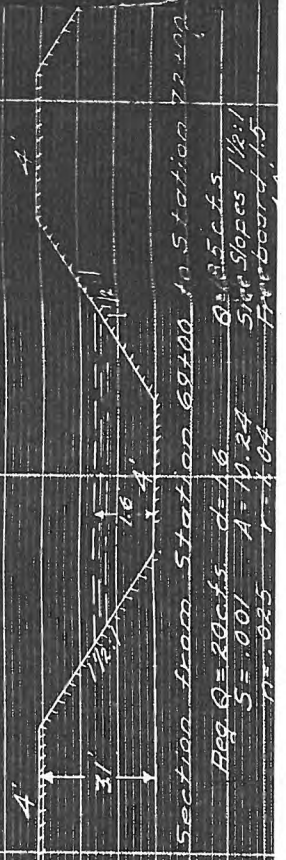 4'
4'
1½:1
1½:1
1.6
4'
3.1'
Section from Station 69+00 to Station
Req Q=20cfs d=1.6 Q= cfs
S=.001 A=10.24 Side Slopes 1½:1
n=.025 r=1.04 Freeboard 1.5